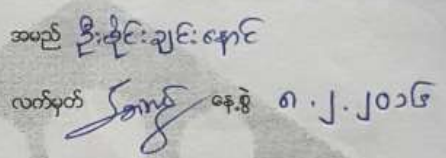 အမည် ဦးခိုင်းချင်းနောင်
လက်မှတ် နေ့စွဲ ၈.၂.၂၀၁၆